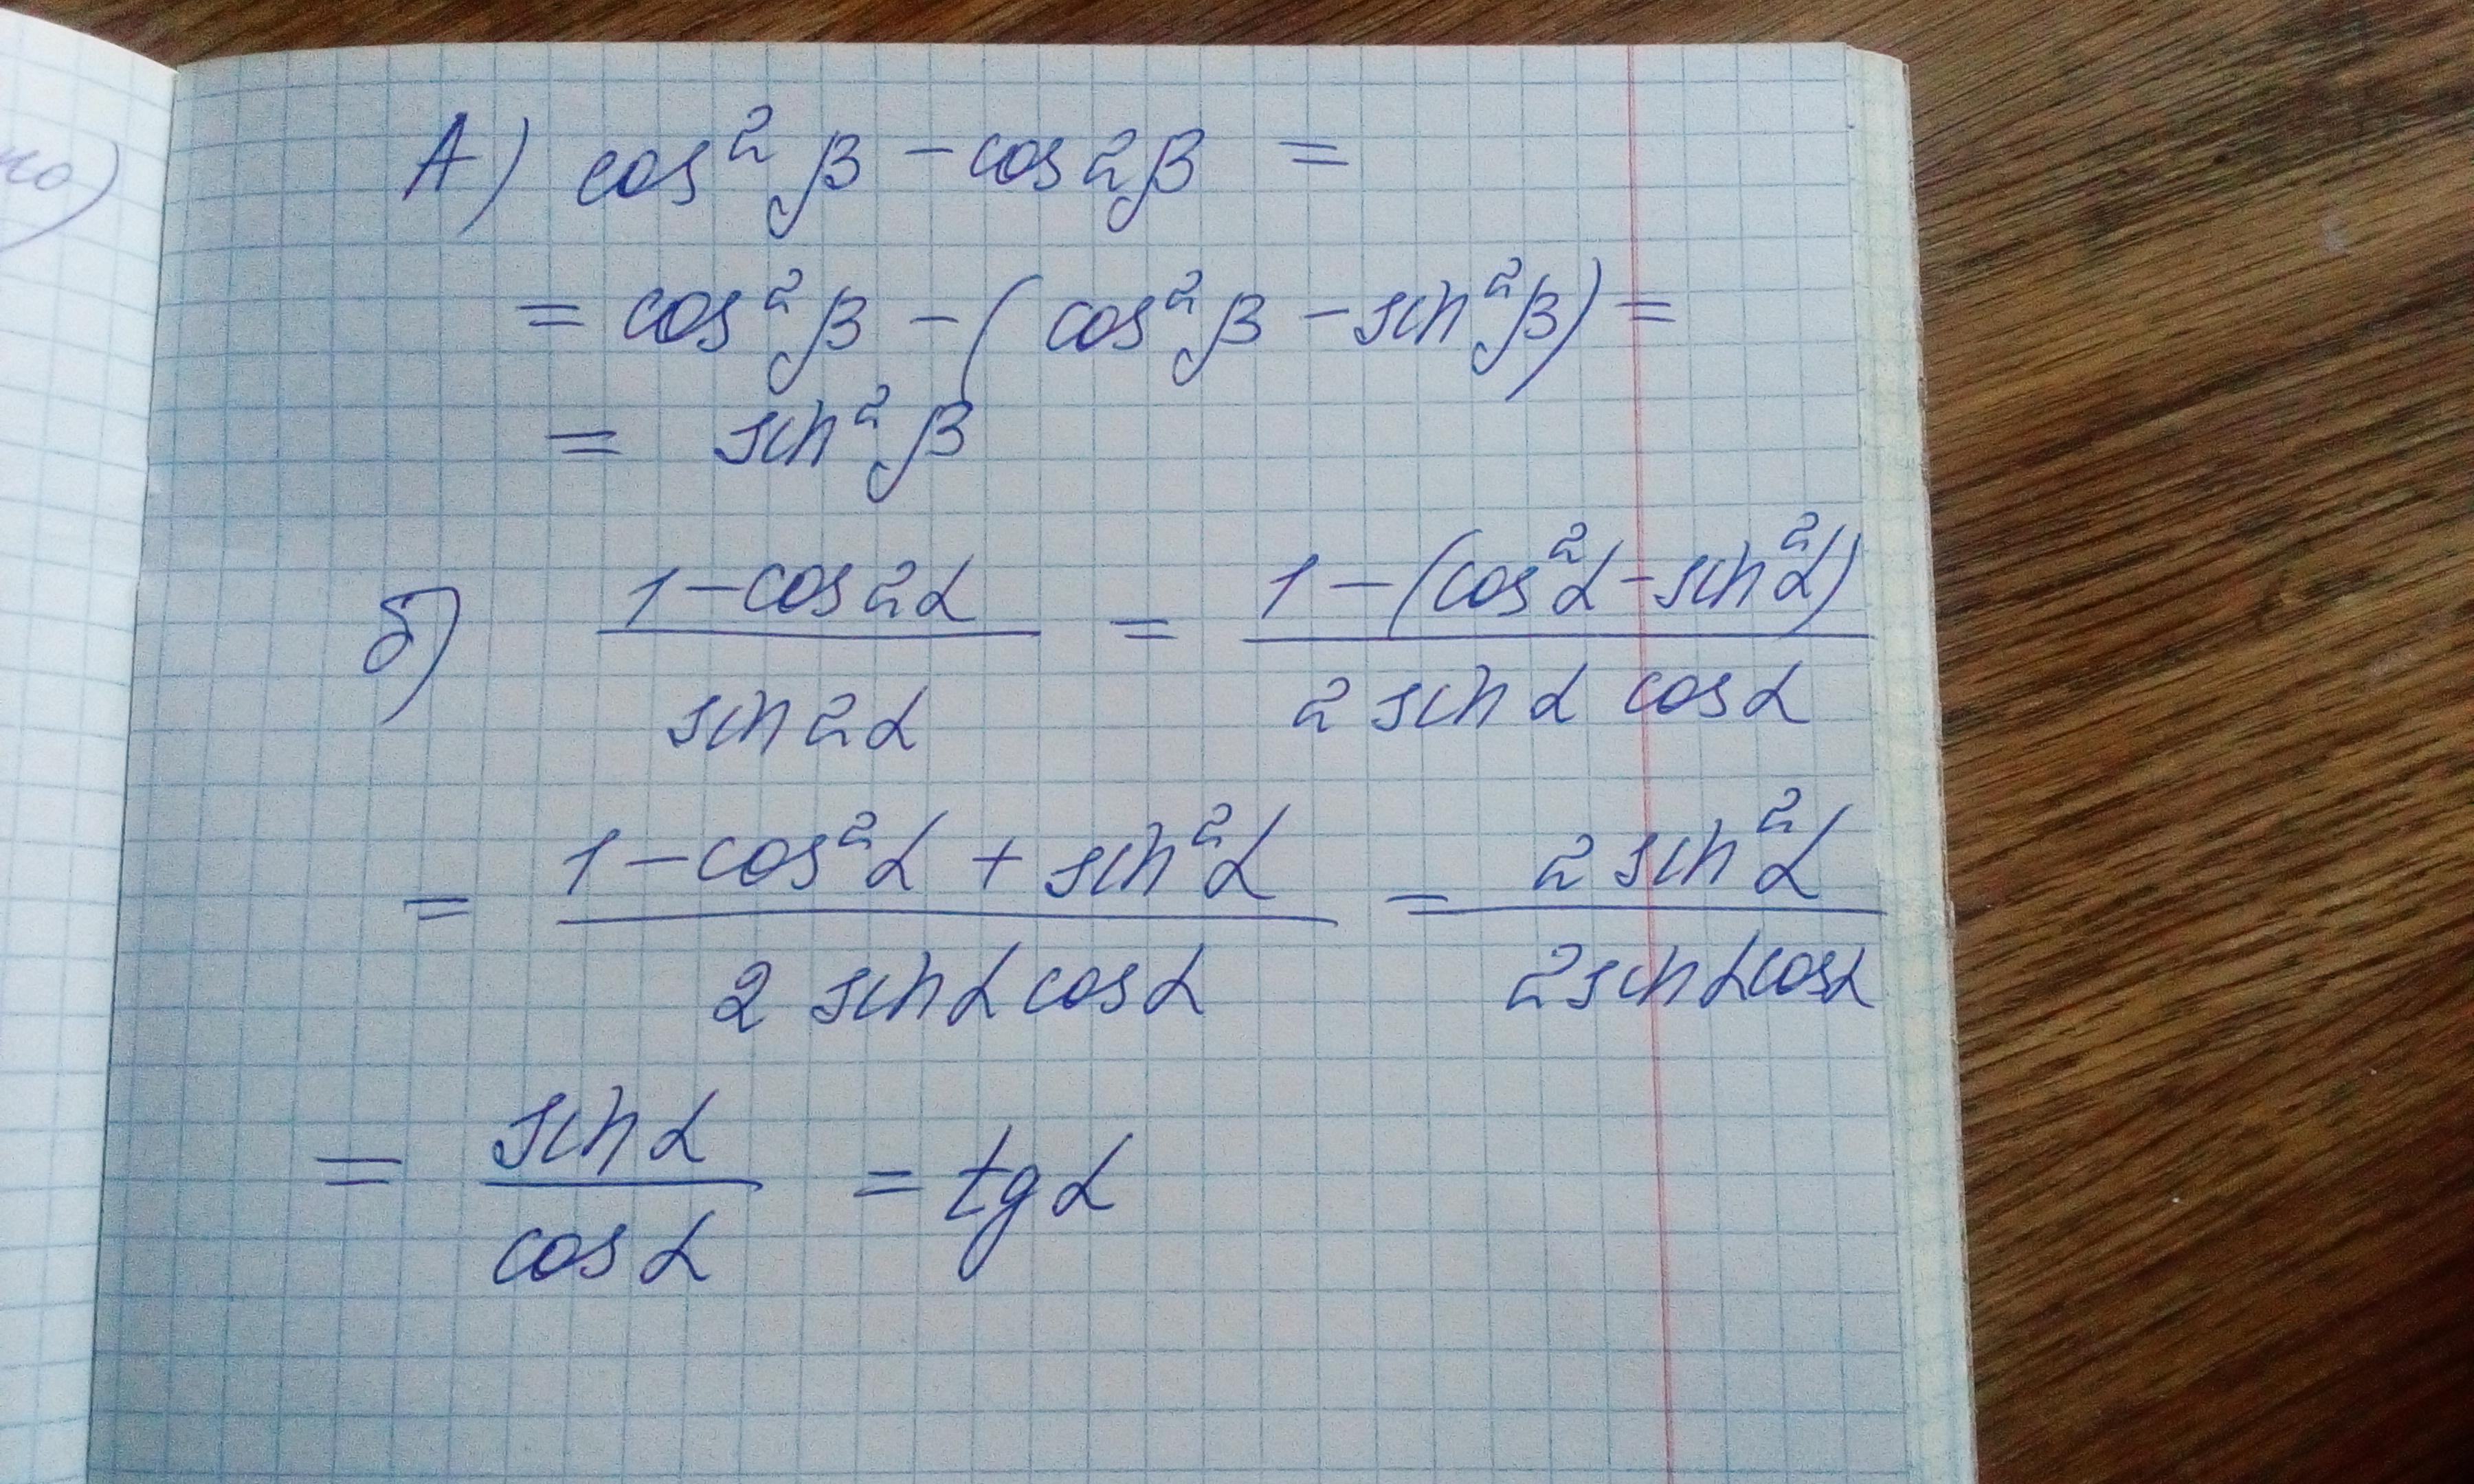 но)
А) cos²β - cos2β =
= cos²β - (cos²β - sin²β) =
= sin²β
б) (1 - cos2α)/(sin2α) = (1 - (cos²α - sin²α))/(2 sinα cosα)
= (1 - cos²α + sin²α)/(2 sinα cosα) = (2 sin²α)/(2 sinα cosα)
= (sinα)/(cosα) = tgα